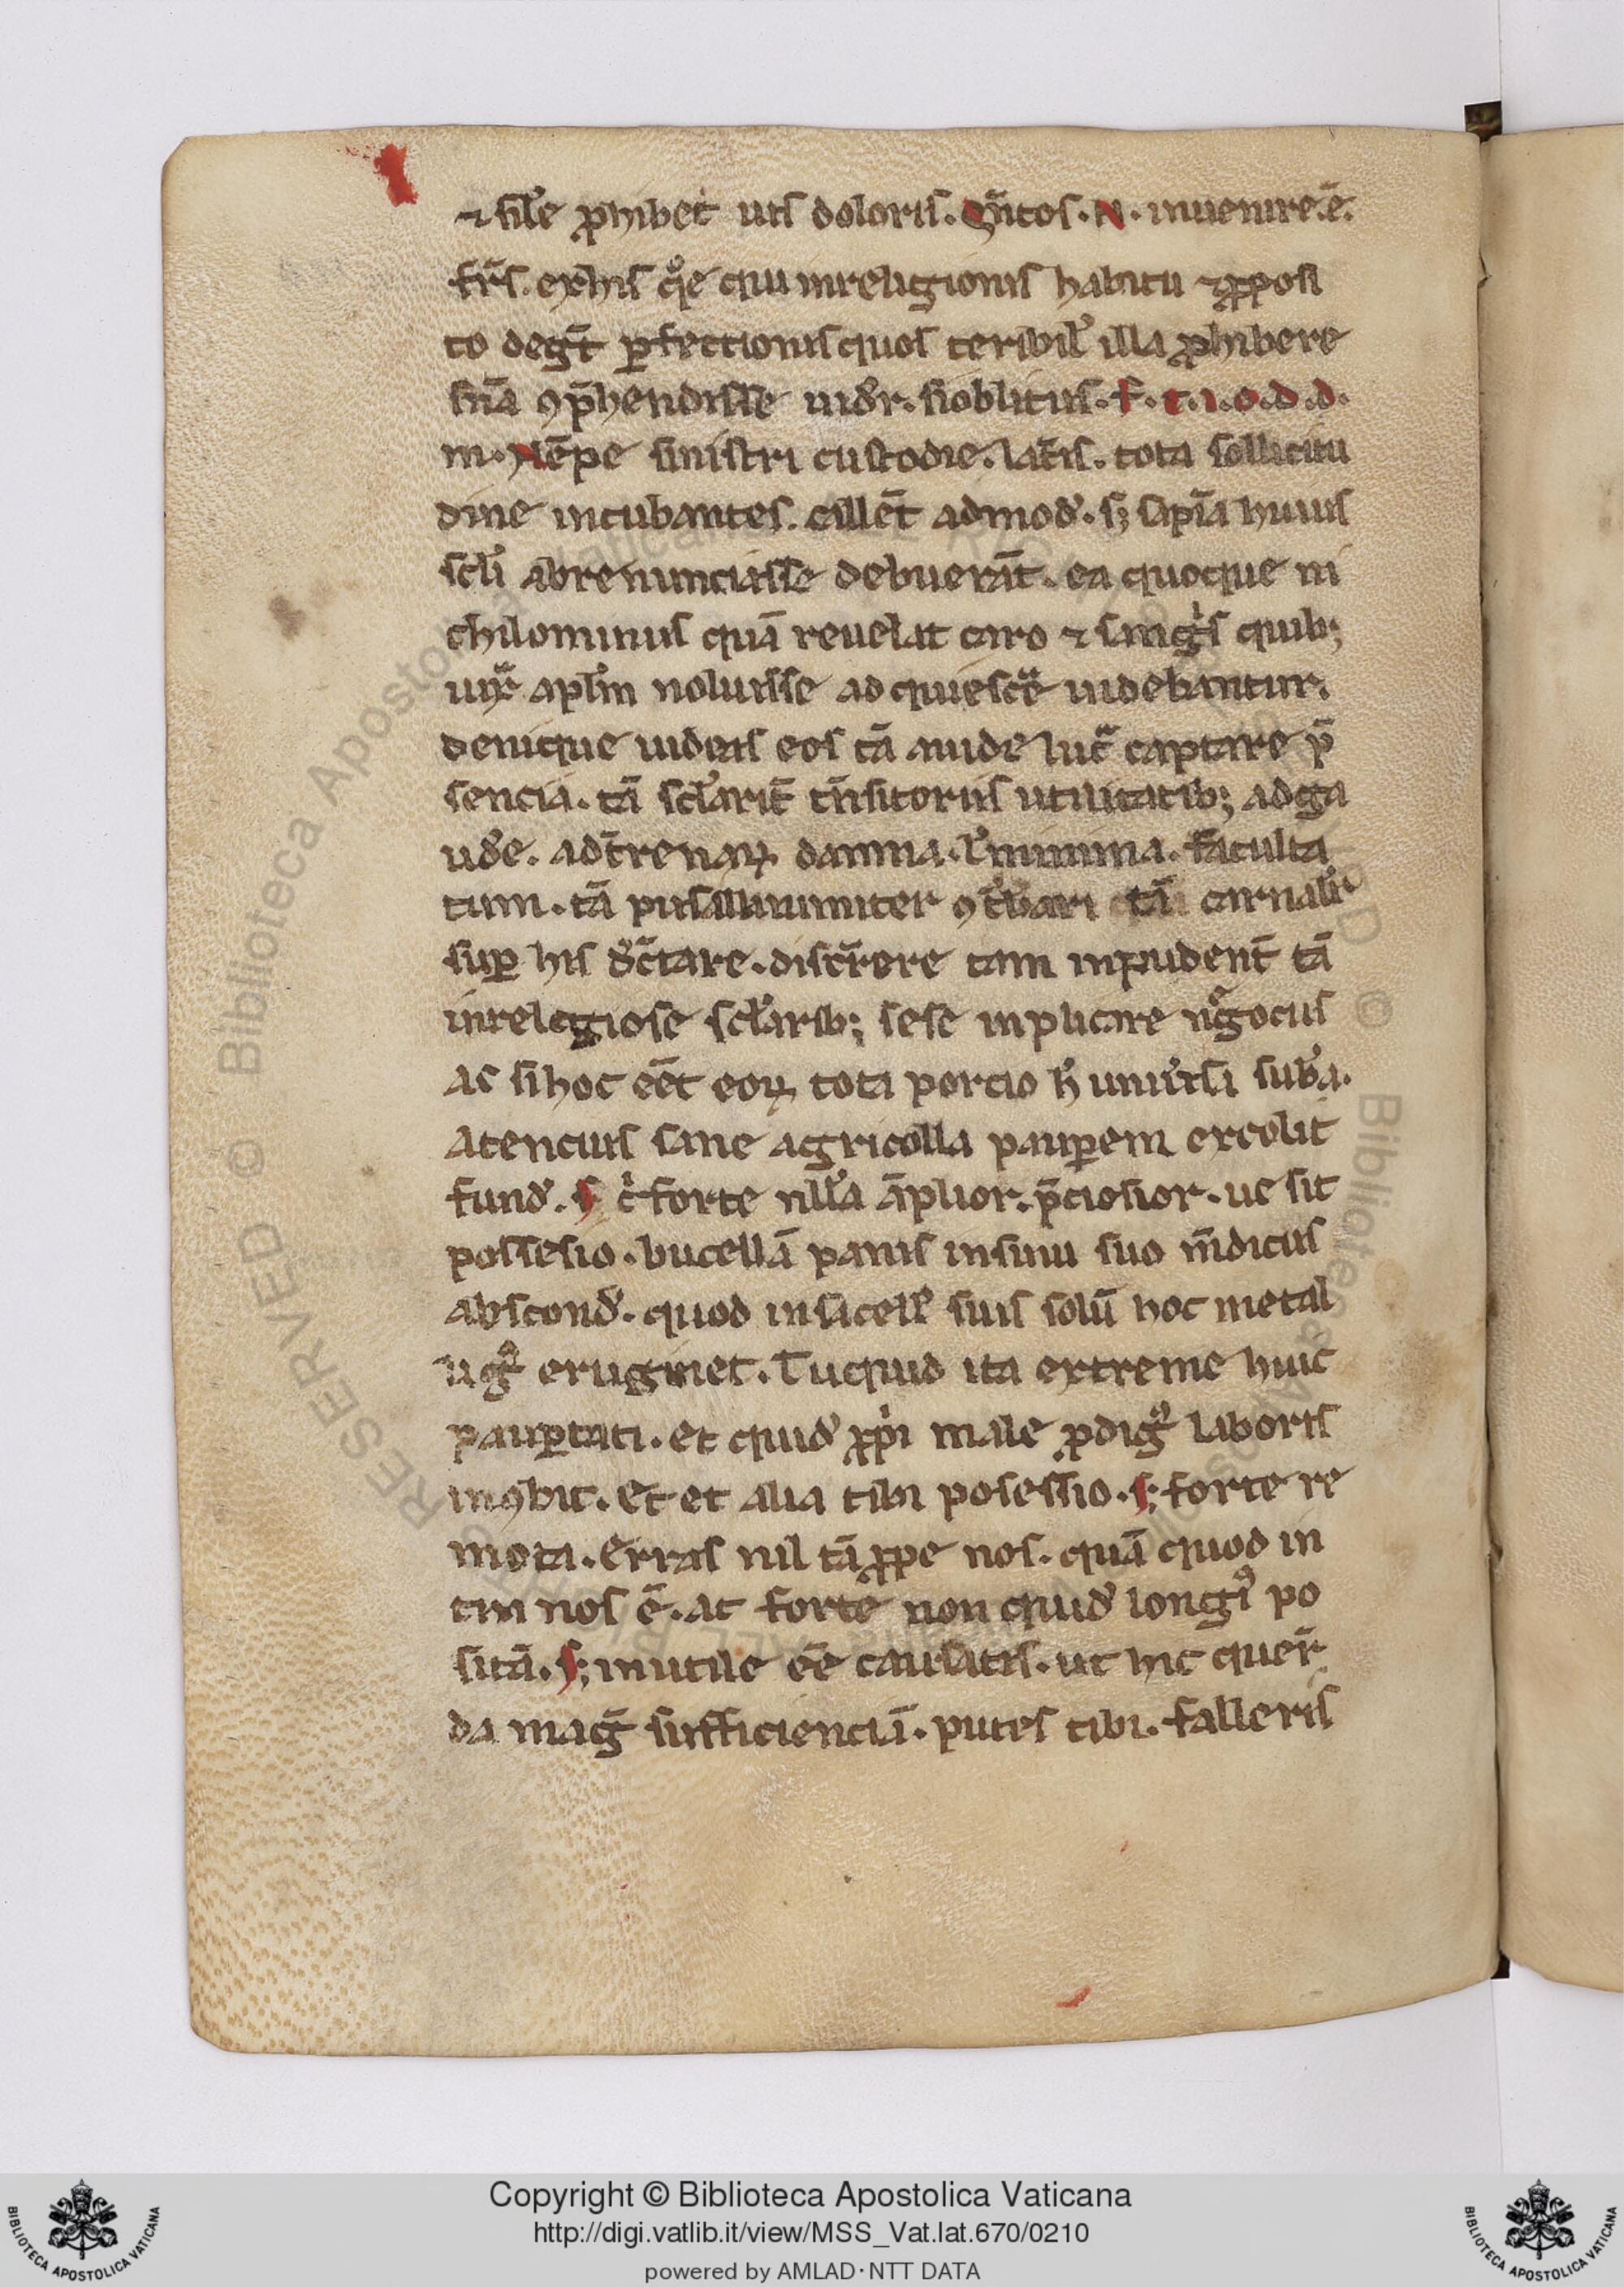 ⁊ sil̃e ꝓhibet uis doloris. Qͣntos. N. inuenire. ẽ.
fr̃s. ex his qͦe qui in religionis habitu ⁊ ꝓposi
to deg̃t ꝑfectionis quos teribil̓ illa ꝓhibere
sñia ꝯp̃hendisse uid̓r. si oblitus. f. t. i. o. d. d.
m. Nẽpe sinistri custodie. lat̃is. tota sollicitu
dine incubantes. callẽt admod̓. sꝫ sap̃ia huius
scl̓i abrenunciasse debuerãt. ea quoque ni
chilominus quã reuelat caro ⁊ sangⁱs quibꝫ
uix apl̓m noluisse adquiescͤe uidebantur.
denique uideas eos tã auide lucͣ captare p̃
sencia. tã scl̓arit̃ tñsitoriis utilitatibꝫ ad ga
ud̓e. ad t̃renaꝝ damna. l̓ minima. faculta
tum. tã pusillanimiter ꝯt̓bari tã carnal̓r
suꝑ his d̓cͣtare. discr̃ere tam inpudent̃ tã
inreligiose scl̓aribꝫ sese inplicare nͤgociis
ac si hoc eẽt eoꝝ tota porcio h̓ uniu̓rsi sub̓a.
Atencius sane agricolla pauꝑem excolit
fund̓. s cⁱ forte nll̓a ãplior. p̃ciosior. ue sit
possesio. bucellã panis in sinu suo m̃dicus
abscond̓. quod in sacell̓ suis solũ hoc metal
ug̓ eruginet. Tu quid ita extreme huic
pauꝑtati. et quid̓ ꝓpⁱi male ꝓdig̓ laboris
inꝯbis. Et et alia tibi posessio. sꝫ forte re
mota. Erras nil tã ꝓpe nos. quã quod in
tra nos ẽ. at forte non quid̓ longi᷒ po
sitã. sꝫ inutile eẽ causatis. ut hic quer̃
da mag̃ sufficienciã. putes tibi. falleris
Copyright © Biblioteca Apostolica Vaticana
http://digi.vatlib.it/view/MSS_Vat.lat.670/0210
powered by AMLAD·NTT DATA